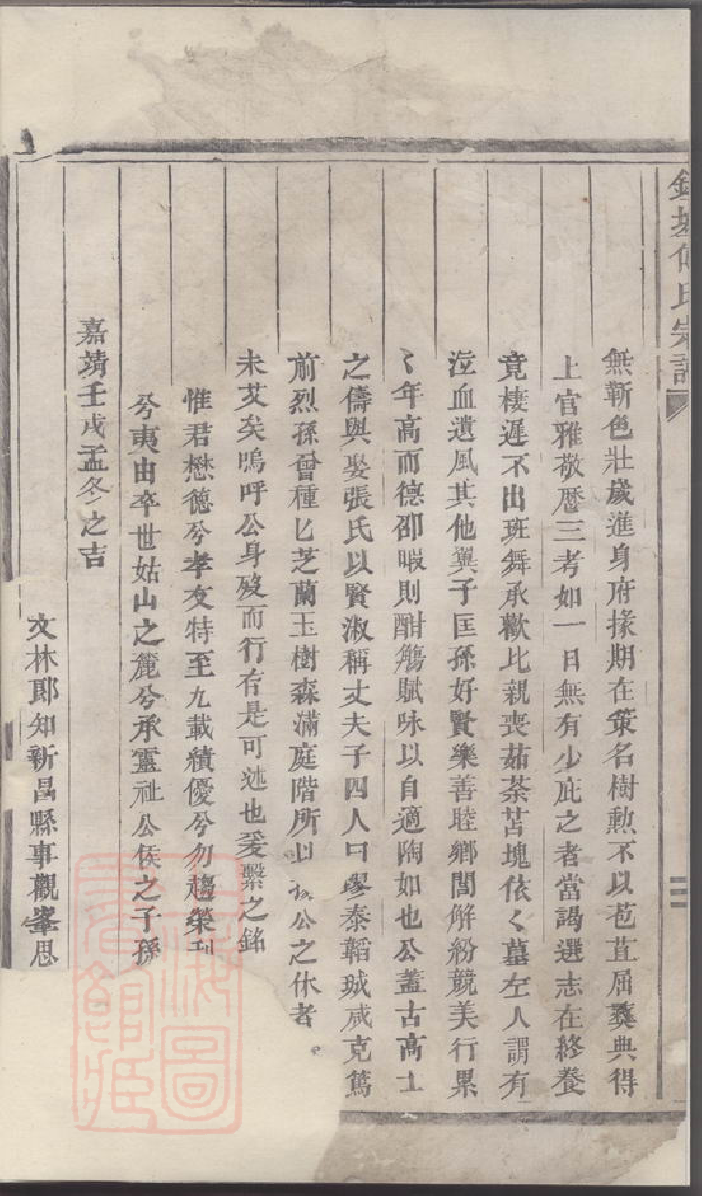 氏宗譜
無靳色壯歲進身府掾期在策名樹勲不以苞苴屈彞典得
上官雅敬歷三考如一日無有少庇之者當謁選志在終養
竟棲遲不出班舞承歡比親喪茹荼苫塊依く墓左人謂有
泣血遺風其他翼子匡孫好賢樂善睦鄉閭解紛競美行累
く年高而德卲暇則酣觴賦咏以自適陶如也公蓋古高士
之儔與娶張氏以賢淑稱丈夫子四人曰泰韜珹咸克篤
前烈孫曾種匕芝蘭玉樹森滿庭階所以公之休者
未艾矣嗚呼公身歿而行有是可述也爰繫之銘
惟君懋德兮孝友特至九載績優兮勿趨榮利
兮夷由卒世姑山之麓兮承靈祉公侯之子孫
嘉靖壬戌孟冬之吉
文林郎知新昌縣事觀峯思
上海圖書館藏